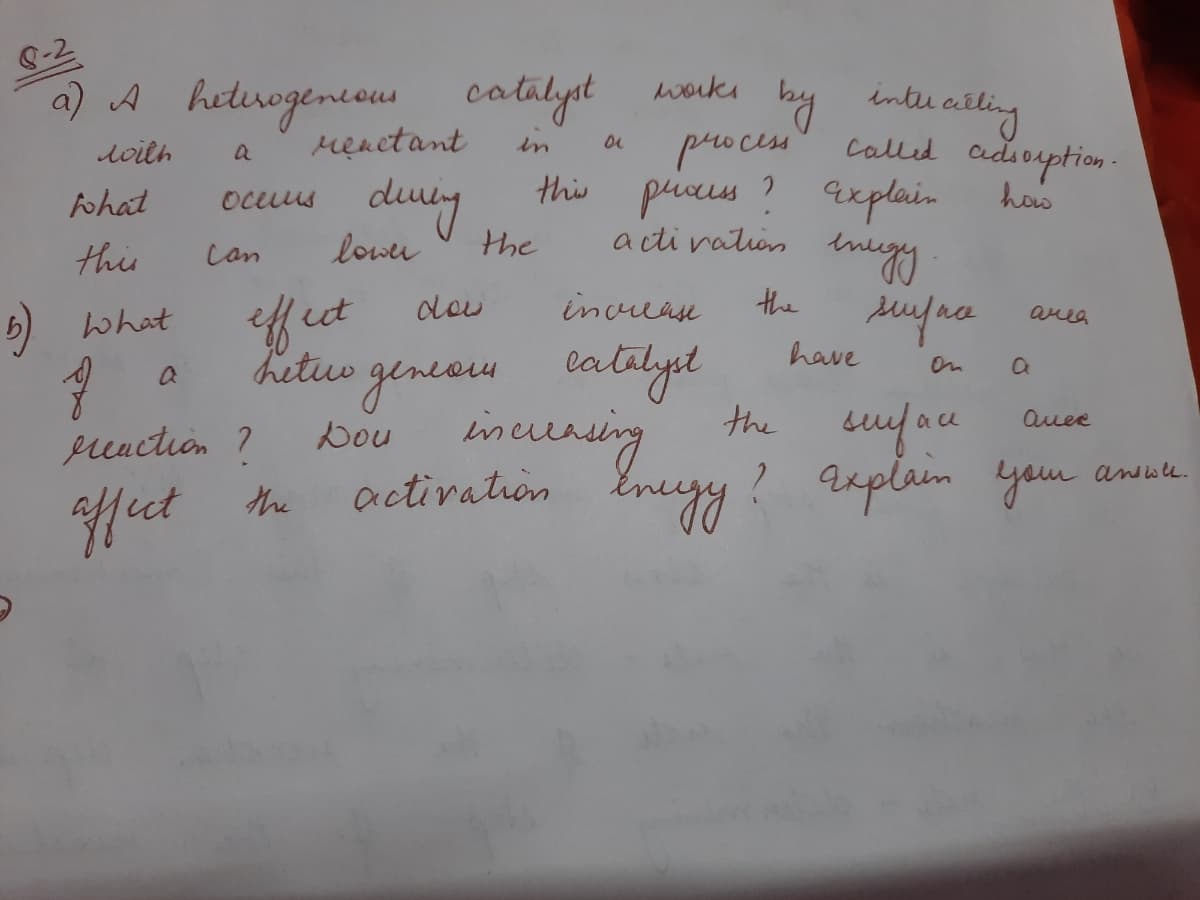 Q-2
a) A heterogeneous catalyst works by interacting
with a reactant in a process called adsorption.
What occurs during this process ? Explain how
this can lower the activation energy.
b) What effect does increase the surface area
of a heterogeneous catalyst have on a
reaction ? Does increasing the surface area
affect the activation energy ? Explain your answer.